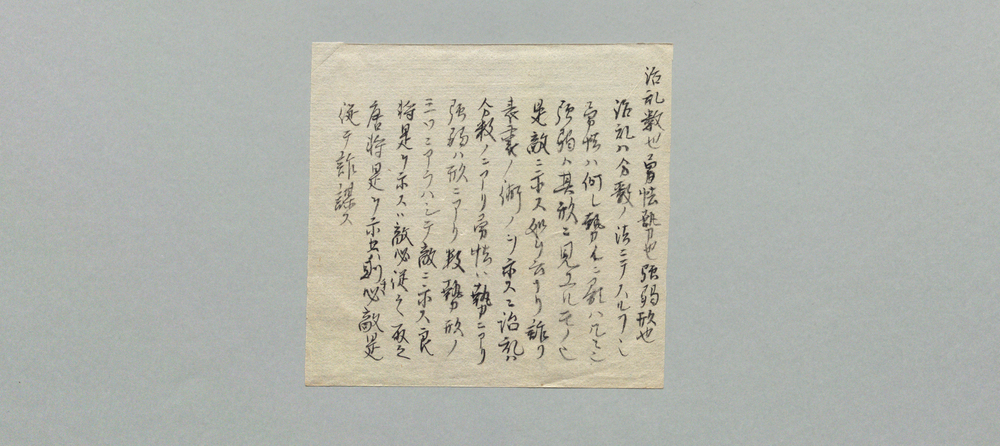 治乱数也勇怯勢也強弱形也
治乱ハ分数ノ法ニテスルフシ
勇怯ハ何レ勢イニ
強弱ハ其形ニ見エルモノ也
是敵ニホス如ク云ナリ詐リ
表裏ノ術ノシホスニ治乱ハ
分数ノニアリ勇怯ハ勢ニアリ
強弱ハ形ニアリ数勢形ノ
三ツニアラハシテ敵ニホス良
将是ヲホスハ敵必従之取之
唐将是ヲホセハ則必敵是
従テ詐謀ス